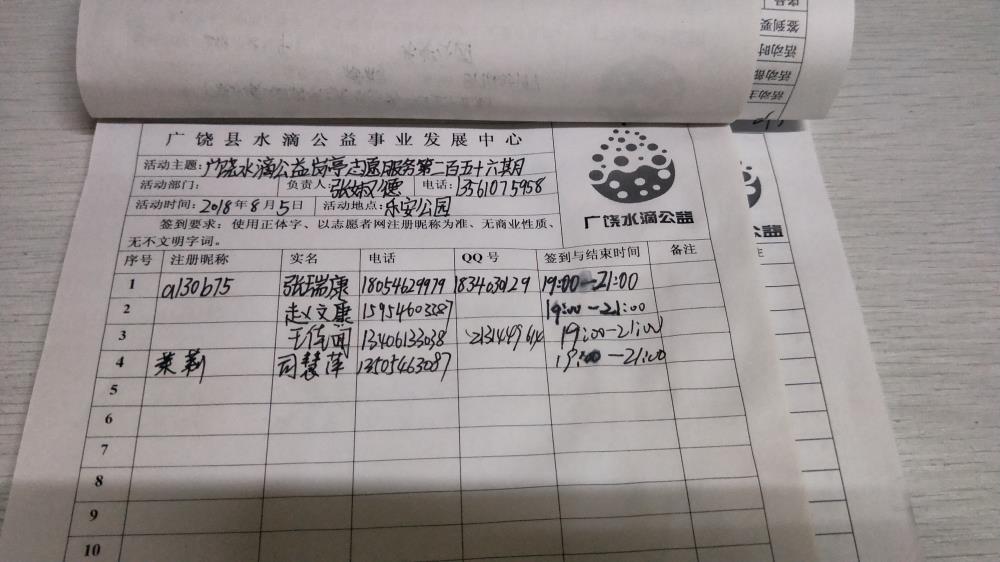 广饶县水滴公益事业发展中心
活动主题:广饶水滴公益岗亭志愿服务第二百五十六期
活动部门: 负责人:张淑德 电话:13561075958
活动时间:2018年8月5日 活动地点:乐安公园
签到要求:使用正体字、以志愿者网注册昵称为准、无商业性质、
无不文明字词。
广饶水滴公益
序号 注册昵称 实名 电话 QQ号 签到与结束时间 备注
1 a130b75 张瑞康 18054629979 183403129 19:00—21:00
2 赵文康 15954603387 19:00—21:00
3 王佳闻 13406133038 19:00—21:00
4 茉莉 司慧萍 13505463087 19:00—21:00
5
6
7
8
9
10
序号
签到要
活动时
活动部
活动主
公益
注